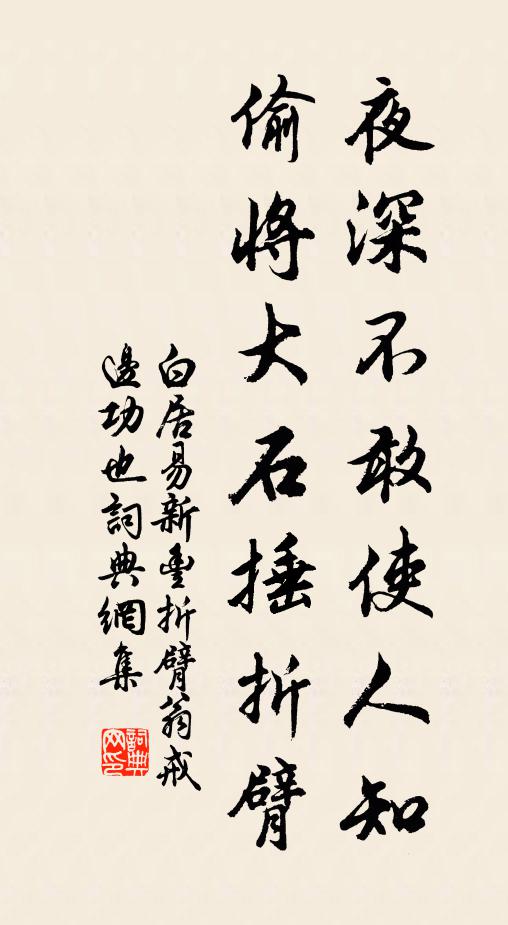 夜深不敢使人知
偷將大石捶折臂
白居易新豐折臂翁戒
邊功也詞典網集
詞典
网印